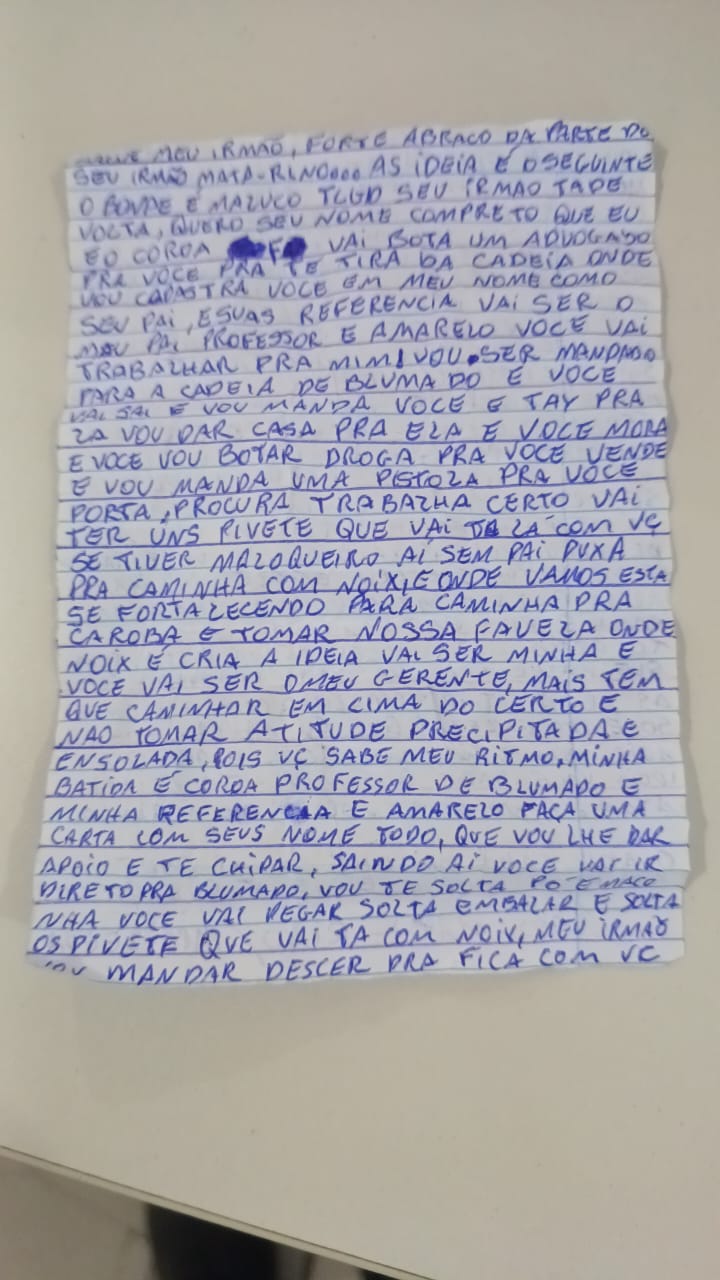 MEU IRMÃO, FORTE ABRAÇO DA PARTE DO
SEU IRMÃO MATA-RINDOOO AS IDEIA É O SEGUINTE
O BONDE É MALUCO TLGD SEU IRMAO TADE
VOLTA, QUERO SEU NOME COMPRETO QUE EU
E O COROA F VAI BOTA UM ADVOGADO
PRA VOCE PRA TE TIRA DA CADEIA ONDE
VOU CADASTRA VOCE EM MEU NOME COMO
SEU PAI, E SUAS REFERENCIA VAI SER O
MEU PAI PROFESSOR E AMARELO VOCE VAI
TRABALHAR PRA MIM, VOU SER MANDADO
PARA A CADEIA DE BLUMADO E VOCE
VAI SAI E VOU MANDA VOCE E TAY PRA
LA VOU DAR CASA PRA ELA E VOCE MORA
E VOCE VOU BOTAR DROGA PRA VOCE VENDE
E VOU MANDA UMA PISTOLA PRA VOCE
PORTA, PROCURA TRABALHA CERTO VAI
TER UNS PIVETE QUE VAI TA LA COM VÇ
SE TIVER MALOQUEIRO AÍ SEM PAI PUXA
PRA CAMINHA COM NOIX, E ONDE VAMOS ESTA
SE FORTALECENDO PARA CAMINHA PRA
CAROBA E TOMAR NOSSA FAVELA ONDE
NOIX É CRIA A IDEIA VAI SER MINHA E
VOCE VAI SER O MEU GERENTE, MAIS TEM
QUE CAMINHAR EM CIMA DO CERTO E
NAO TOMAR ATITUDE PRECIPITADA E
ENSOLADA, POIS VÇ SABE MEU RITMO, MINHA
BATIDA É COROA PROFESSOR DE BLUMADO E
MINHA REFERENCIA E AMARELO FAÇA UMA
CARTA COM SEUS NOME TODO, QUE VOU LHE DAR
APOIO E TE CUIPAR, SAINDO AI VOCE VAI IR
DIRETO PRA BLUMADO, VOU TE SOLTA PÓ E MACO
NHA VOCE VAI PEGAR SOLTA EMBALAR E SOLTA
OS PIVETE QUE VAI TA COM NOIX, MEU IRMAO
VOU MANDAR DESCER PRA FICA COM VC